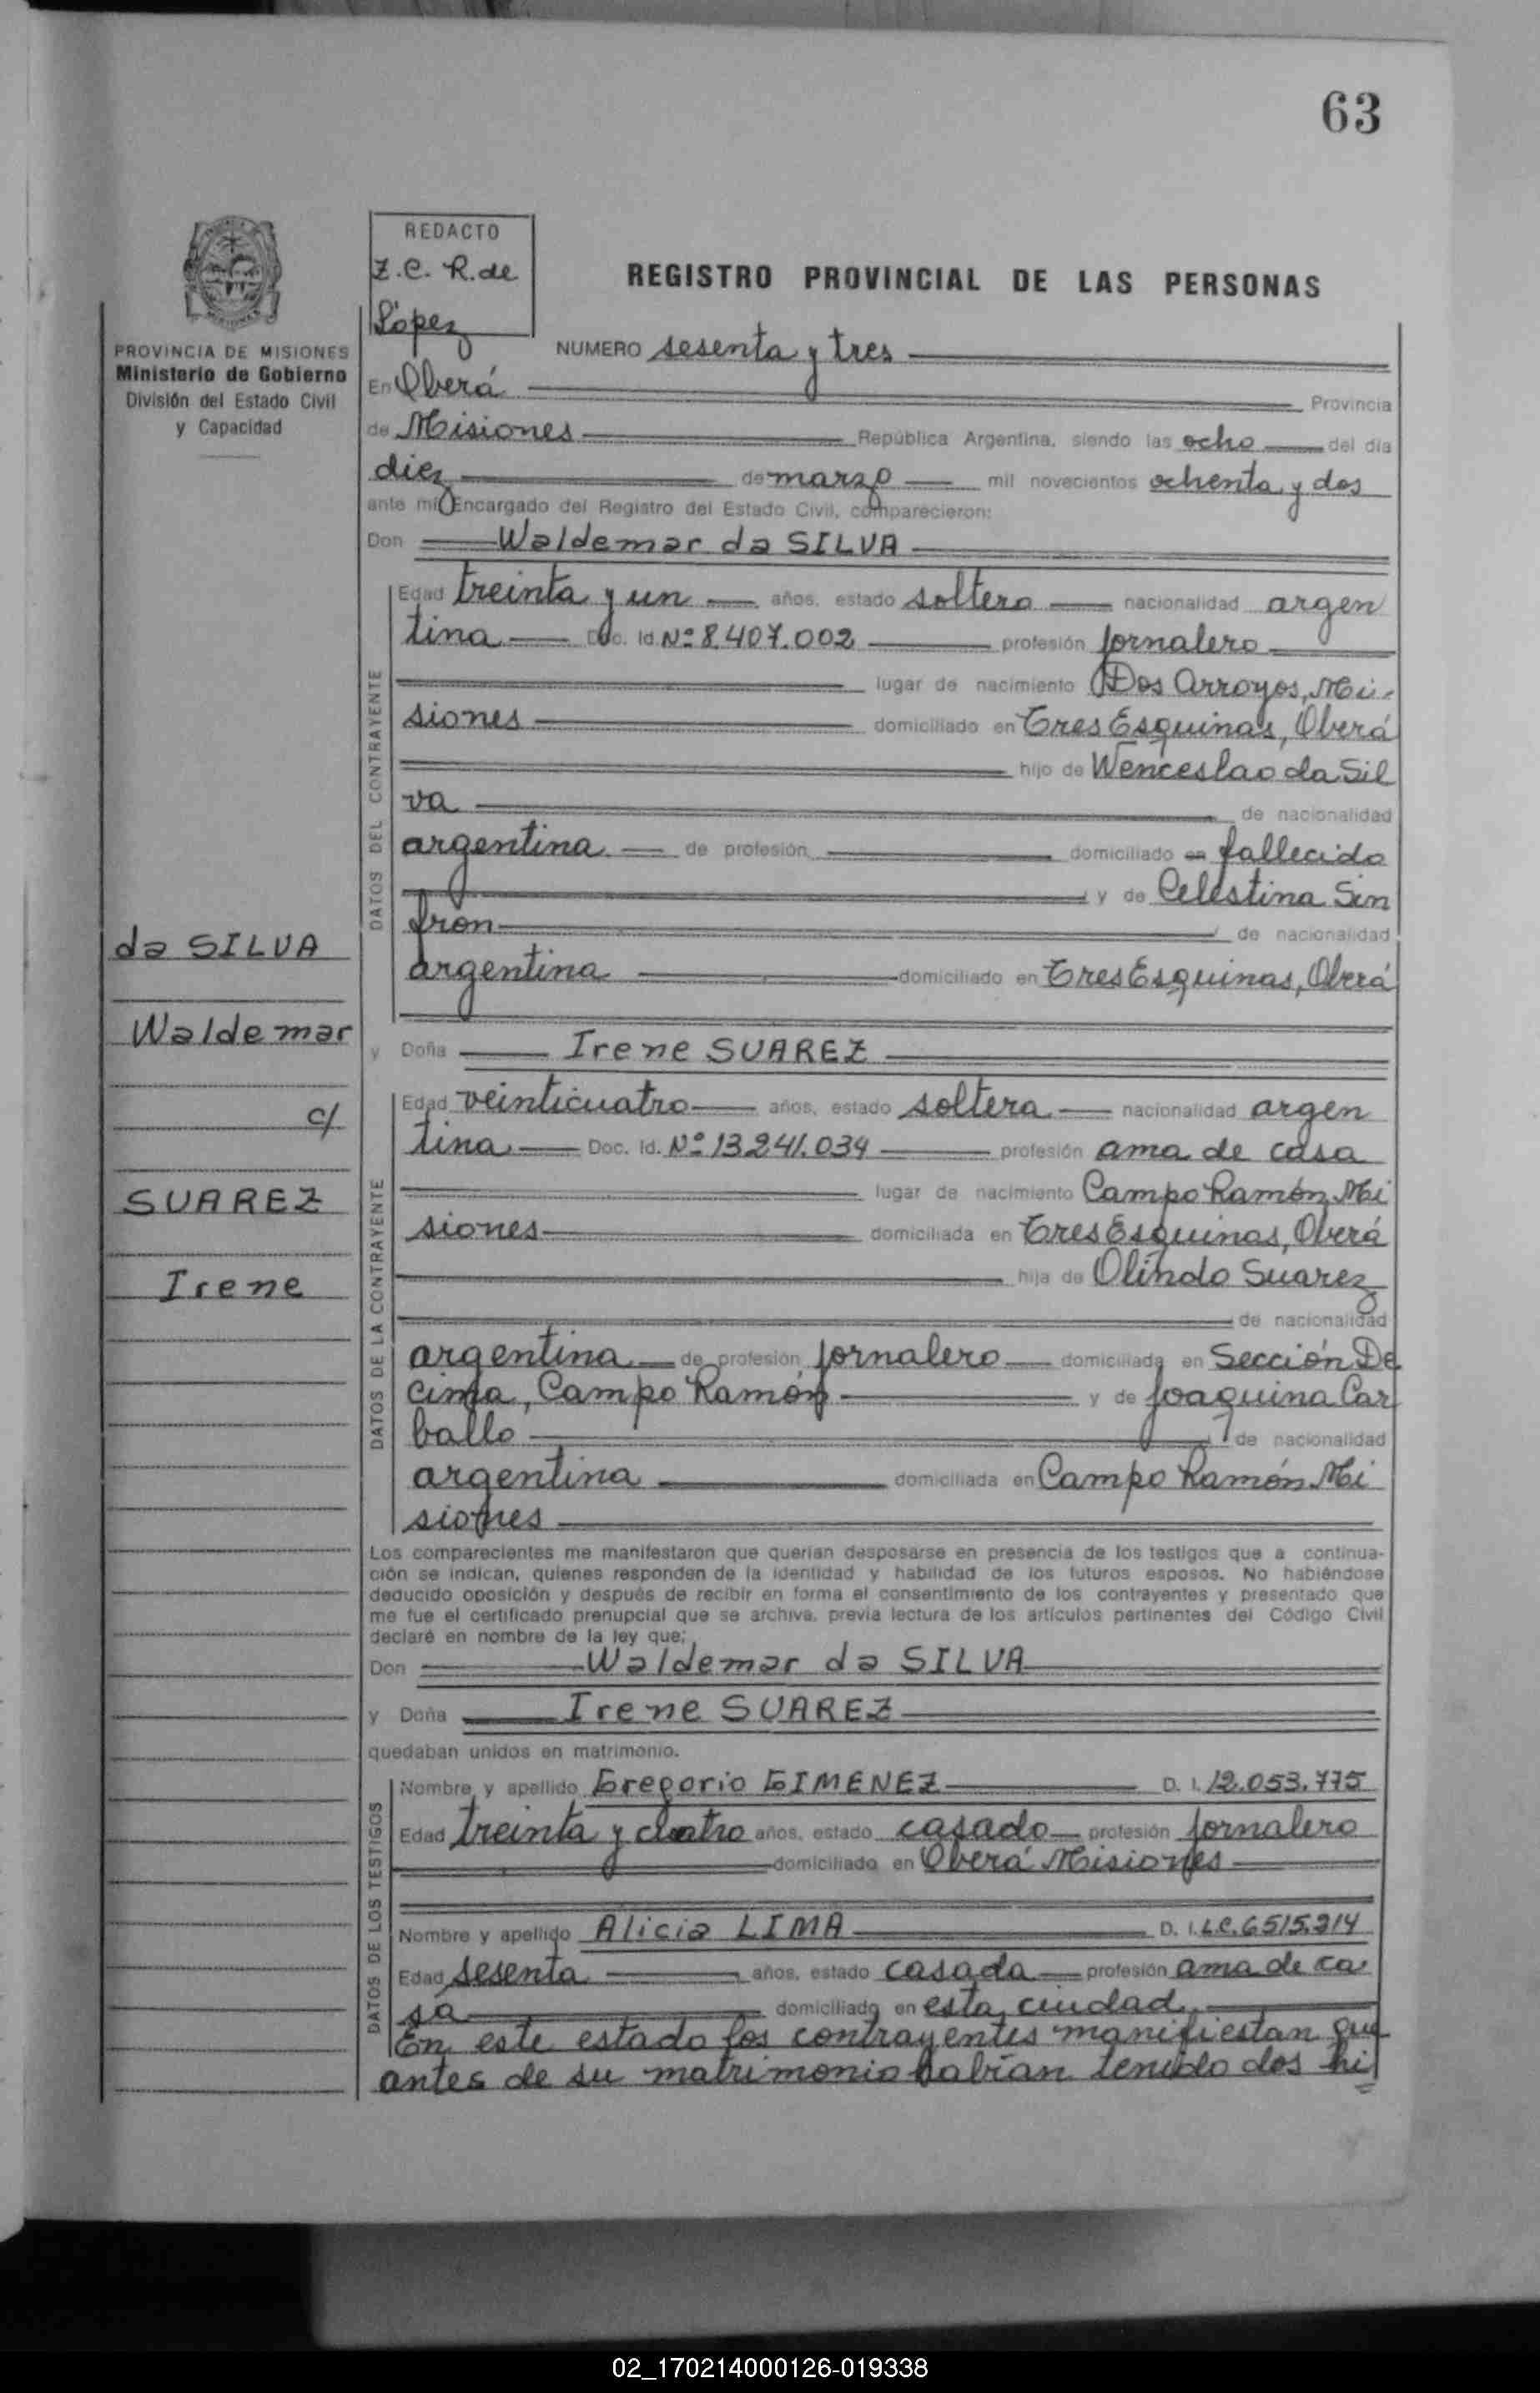 63
REDACTO
Z.C. R. de
López
REGISTRO PROVINCIAL DE LAS PERSONAS
PROVINCIA DE MISIONES
Ministerio de Gobierno
División del Estado Civil
y Capacidad
NUMERO sesenta y tres
En Oberá Provincia
de Misiones República Argentina, siendo las ocho del día
diez de marzo mil novecientos ochenta y dos
ante mi Encargado del Registro del Estado Civil, comparecieron:
Don Waldemar da SILVA
DATOS DEL CONTRAYENTE
Edad treinta y un años, estado soltero nacionalidad argen
tina Doc. Id. Nº 8.407.002 profesión jornalero
lugar de nacimiento Dos Arroyos, Mi-
siones domiciliado en Tres Esquinas, Oberá
hijo de Wenceslao da Sil
va de nacionalidad
argentina de profesión domiciliado en fallecido
y de Celestina Sin
fron de nacionalidad
argentina domiciliado en Tres Esquinas, Oberá
da SILVA
Waldemar
c/
SUAREZ
Irene
y Doña Irene SUAREZ
DATOS DE LA CONTRAYENTE
Edad veinticuatro años, estado soltera nacionalidad argen
tina Doc. Id. Nº 13.241.034 profesión ama de casa
lugar de nacimiento Campo Ramón, Mi
siones domiciliada en Tres Esquinas, Oberá
hija de Olindo Suarez
de nacionalidad
argentina de profesión jornalero domiciliada en Sección De
cima, Campo Ramón y de Joaquina Car
ballo de nacionalidad
argentina domiciliada en Campo Ramón Mi
siones
Los comparecientes me manifestaron que querían desposarse en presencia de los testigos que a continua-
ción se indican, quienes responden de la identidad y habilidad de los futuros esposos. No habiéndose
deducido oposición y después de recibir en forma el consentimiento de los contrayentes y presentado que
me fue el certificado prenupcial que se archiva, previa lectura de los artículos pertinentes del Código Civil
declaré en nombre de la ley que;
Don Waldemar da SILVA
y Doña Irene SUAREZ
quedaban unidos en matrimonio.
DATOS DE LOS TESTIGOS
Nombre y apellido Gregorio GIMENEZ D. I. 12.053.775
Edad treinta y cuatro años, estado casado profesión jornalero
domiciliado en Oberá Misiones
Nombre y apellido Alicia LIMA D. I. L.C. 6.515.214
Edad sesenta años, estado casada profesión ama de ca
sa domiciliada en esta ciudad.
En este estado los contrayentes manifiestan que
antes de su matrimonio habían tenido dos hi
02_170214000126-019338